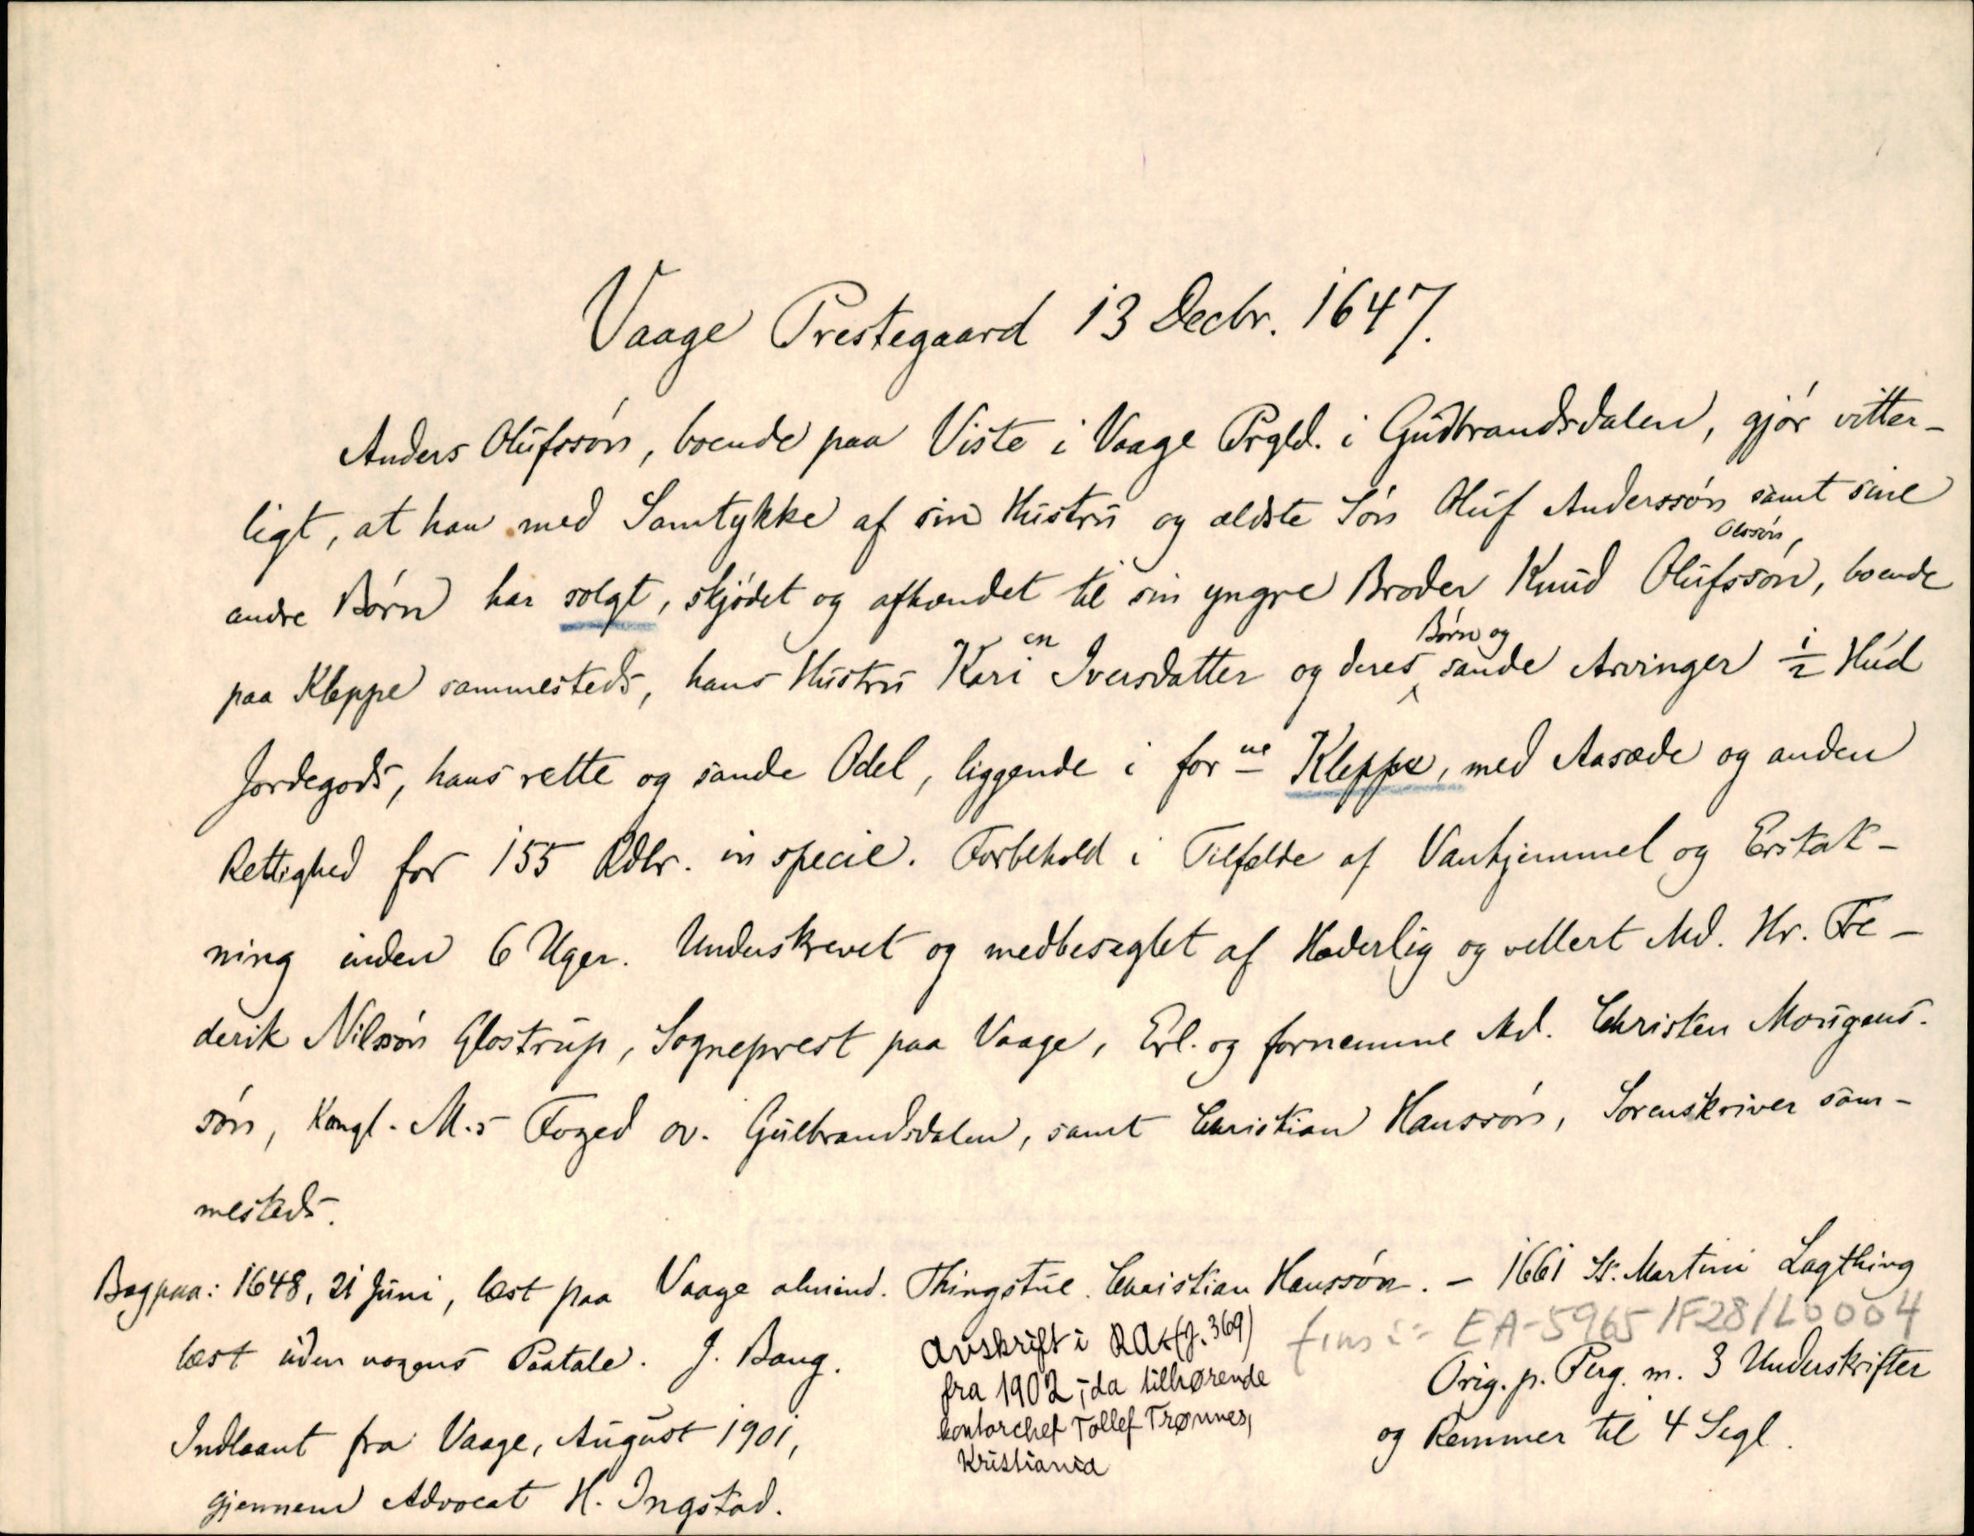 Vaage Prestegaard 13 Decbr. 1647.
Anders Olufssøn, boende paa Viste i Vaage Prgld. i Gudbrandsdalen, gjør vitter-
ligt, at han med Samtykke af sin Hustru og ældste Søn Oluf Anderssøn samt sine
Olssøn,
andre Børn har solgt, skjødet og afhændet til sin yngre Broder Knud Olufssøn, boende
en Børn og
paa Kleppe sammesteds, hans Hustru Kari Iversdatter og deres sande Arvinger 1/2 Hud
Jordegods, hans rette og sande Odel, liggende i for ne Kleppe, med Aasæde og anden
Rettighed for 155 Rdlr. in specie. Forbehold i Tilfælde af Vanhjemmel og Erstat-
ning inden 6 Uger. Underskrevet og medbeseglet af Hæderlig og vellert Md. Hr. Fre-
derik Nilssøn Glostrup, Sogneprest paa Vaage, Erl. og fornemme Md. Christen Mougens-
søn, Kongl. M.s Foged ov. Gulbrandsdalen, samt Christian Hanssøn, Sorenskriver sam-
mesteds.
Bagpaa: 1648, 21 Juni, læst paa Vaage almind. Thingstue. Christian Hanssøn. - 1661 St. Martini Lagthing
læst uden nogens Paatale. J. Bang.
Indlaant fra Vaage, August 1901,
gjennem Advocat H. Ingstad.
Avskrift i RA (J. 369)
fra 1902, da tilhørende
kontorchef Tollef Trønnes,
Kristiania
fins i: EA-5965/F28/L0004
Orig. p. Perg. m. 3 Underskrifter
og Remmer til 4 Segl.